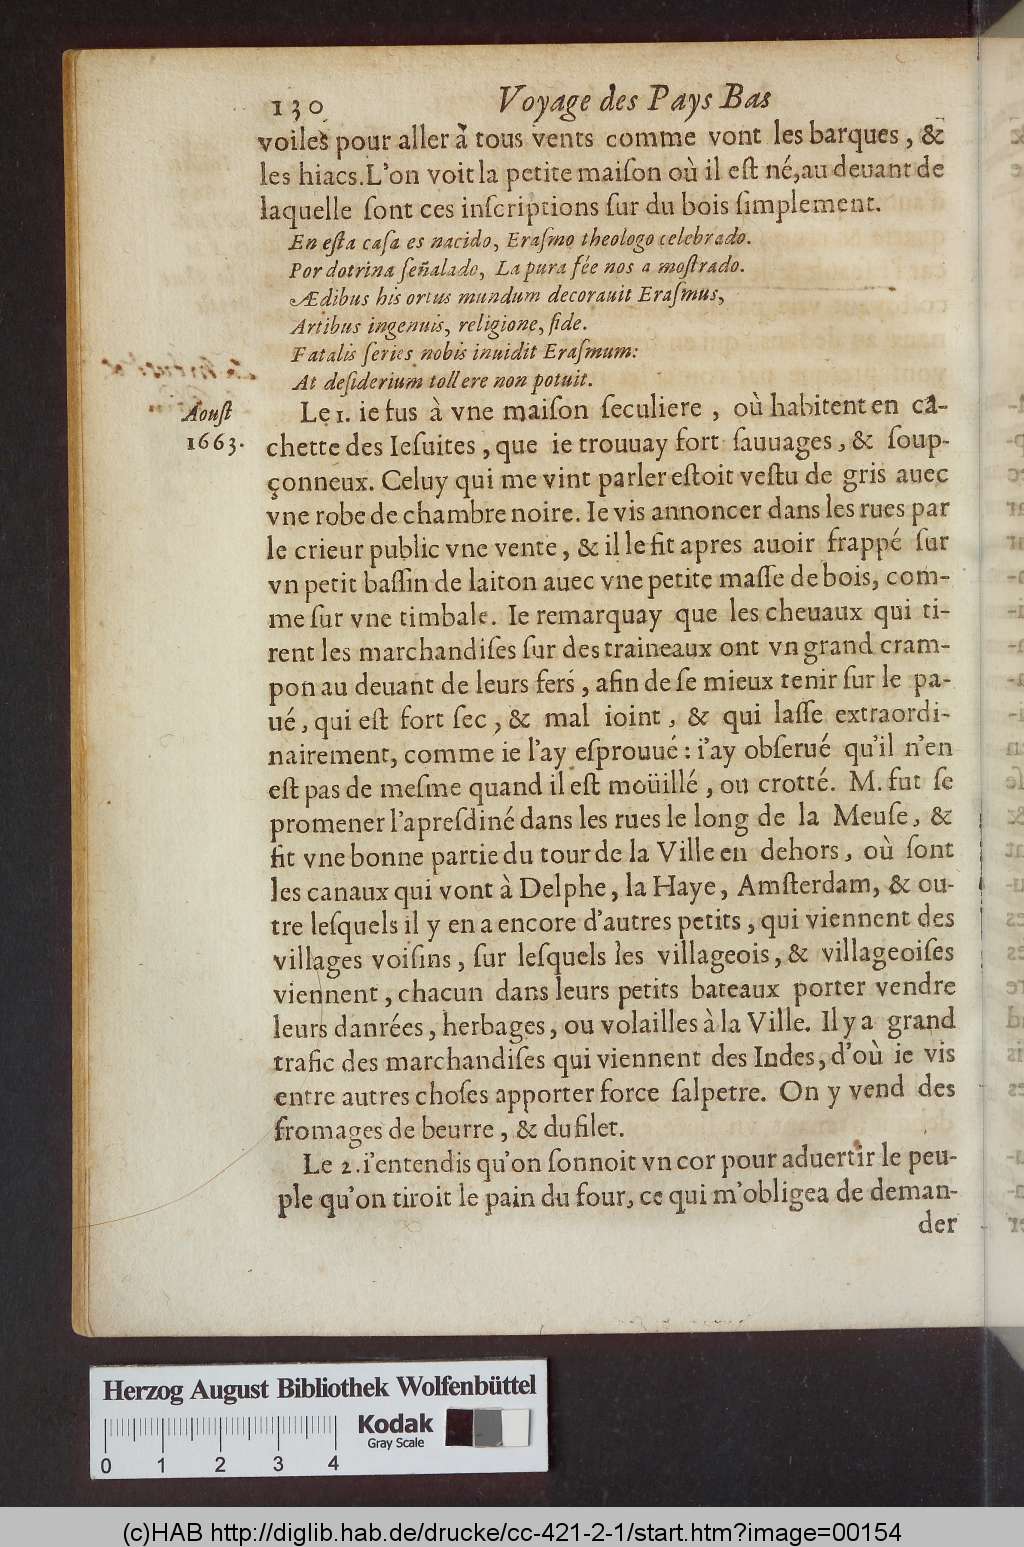 130 Voyage des Pays Bas
voiles pour aller à tous vents comme vont les barques, &
les hiacs. L'on voit la petite maiſon où il eſt né, au deuant de
laquelle ſont ces inſcriptions ſur du bois ſimplement.
En eſta caſa es nacido, Eraſmo theologo celebrado.
Por dotrina ſeñalado, La pura fée nos a moſtrado.
Ædibus his ortus mundum decorauit Eraſmus,
Artibus ingenuis, religione, fide.
Fatalis ſeries nobis inuidit Eraſmum:
At deſiderium tollere non potuit.
Aouſt
1663.
Le 1. ie fus à vne maiſon ſeculiere, où habitent en ca-
chette des Ieſuites, que ie trouuay fort ſauuages, & ſoup-
çonneux. Celuy qui me vint parler eſtoit veſtu de gris auec
vne robe de chambre noire. Ie vis annoncer dans les rues par
le crieur public vne vente, & il le fit apres auoir frappé ſur
vn petit baſſin de laiton auec vne petite maſſe de bois, com-
me ſur vne timbale. Ie remarquay que les cheuaux qui ti-
rent les marchandiſes ſur des traineaux ont vn grand cram-
pon au deuant de leurs fers, afin de ſe mieux tenir ſur le pa-
ué, qui eſt fort ſec, & mal ioint, & qui laſſe extraordi-
nairement, comme ie l'ay eſprouué: i'ay obſerué qu'il n'en
eſt pas de meſme quand il eſt moüillé, ou crotté. M. fut ſe
promener l'apreſdiné dans les rues le long de la Meuſe, &
fit vne bonne partie du tour de la Ville en dehors, où ſont
les canaux qui vont à Delphe, la Haye, Amſterdam, & ou-
tre leſquels il y en a encore d'autres petits, qui viennent des
villages voiſins, ſur leſquels les villageois, & villageoiſes
viennent, chacun dans leurs petits bateaux porter vendre
leurs danrées, herbages, ou volailles à la Ville. Il y a grand
trafic des marchandiſes qui viennent des Indes, d'où ie vis
entre autres choſes apporter force ſalpetre. On y vend des
fromages de beurre, & du filet.
Le 2. i'entendis qu'on ſonnoit vn cor pour aduertir le peu-
ple qu'on tiroit le pain du four, ce qui m'obligea de deman-
der
Herzog August Bibliothek Wolfenbüttel
Kodak
Gray Scale
0 1 2 3 4
(c)HAB http://diglib.hab.de/drucke/cc-421-2-1/start.htm?image=00154